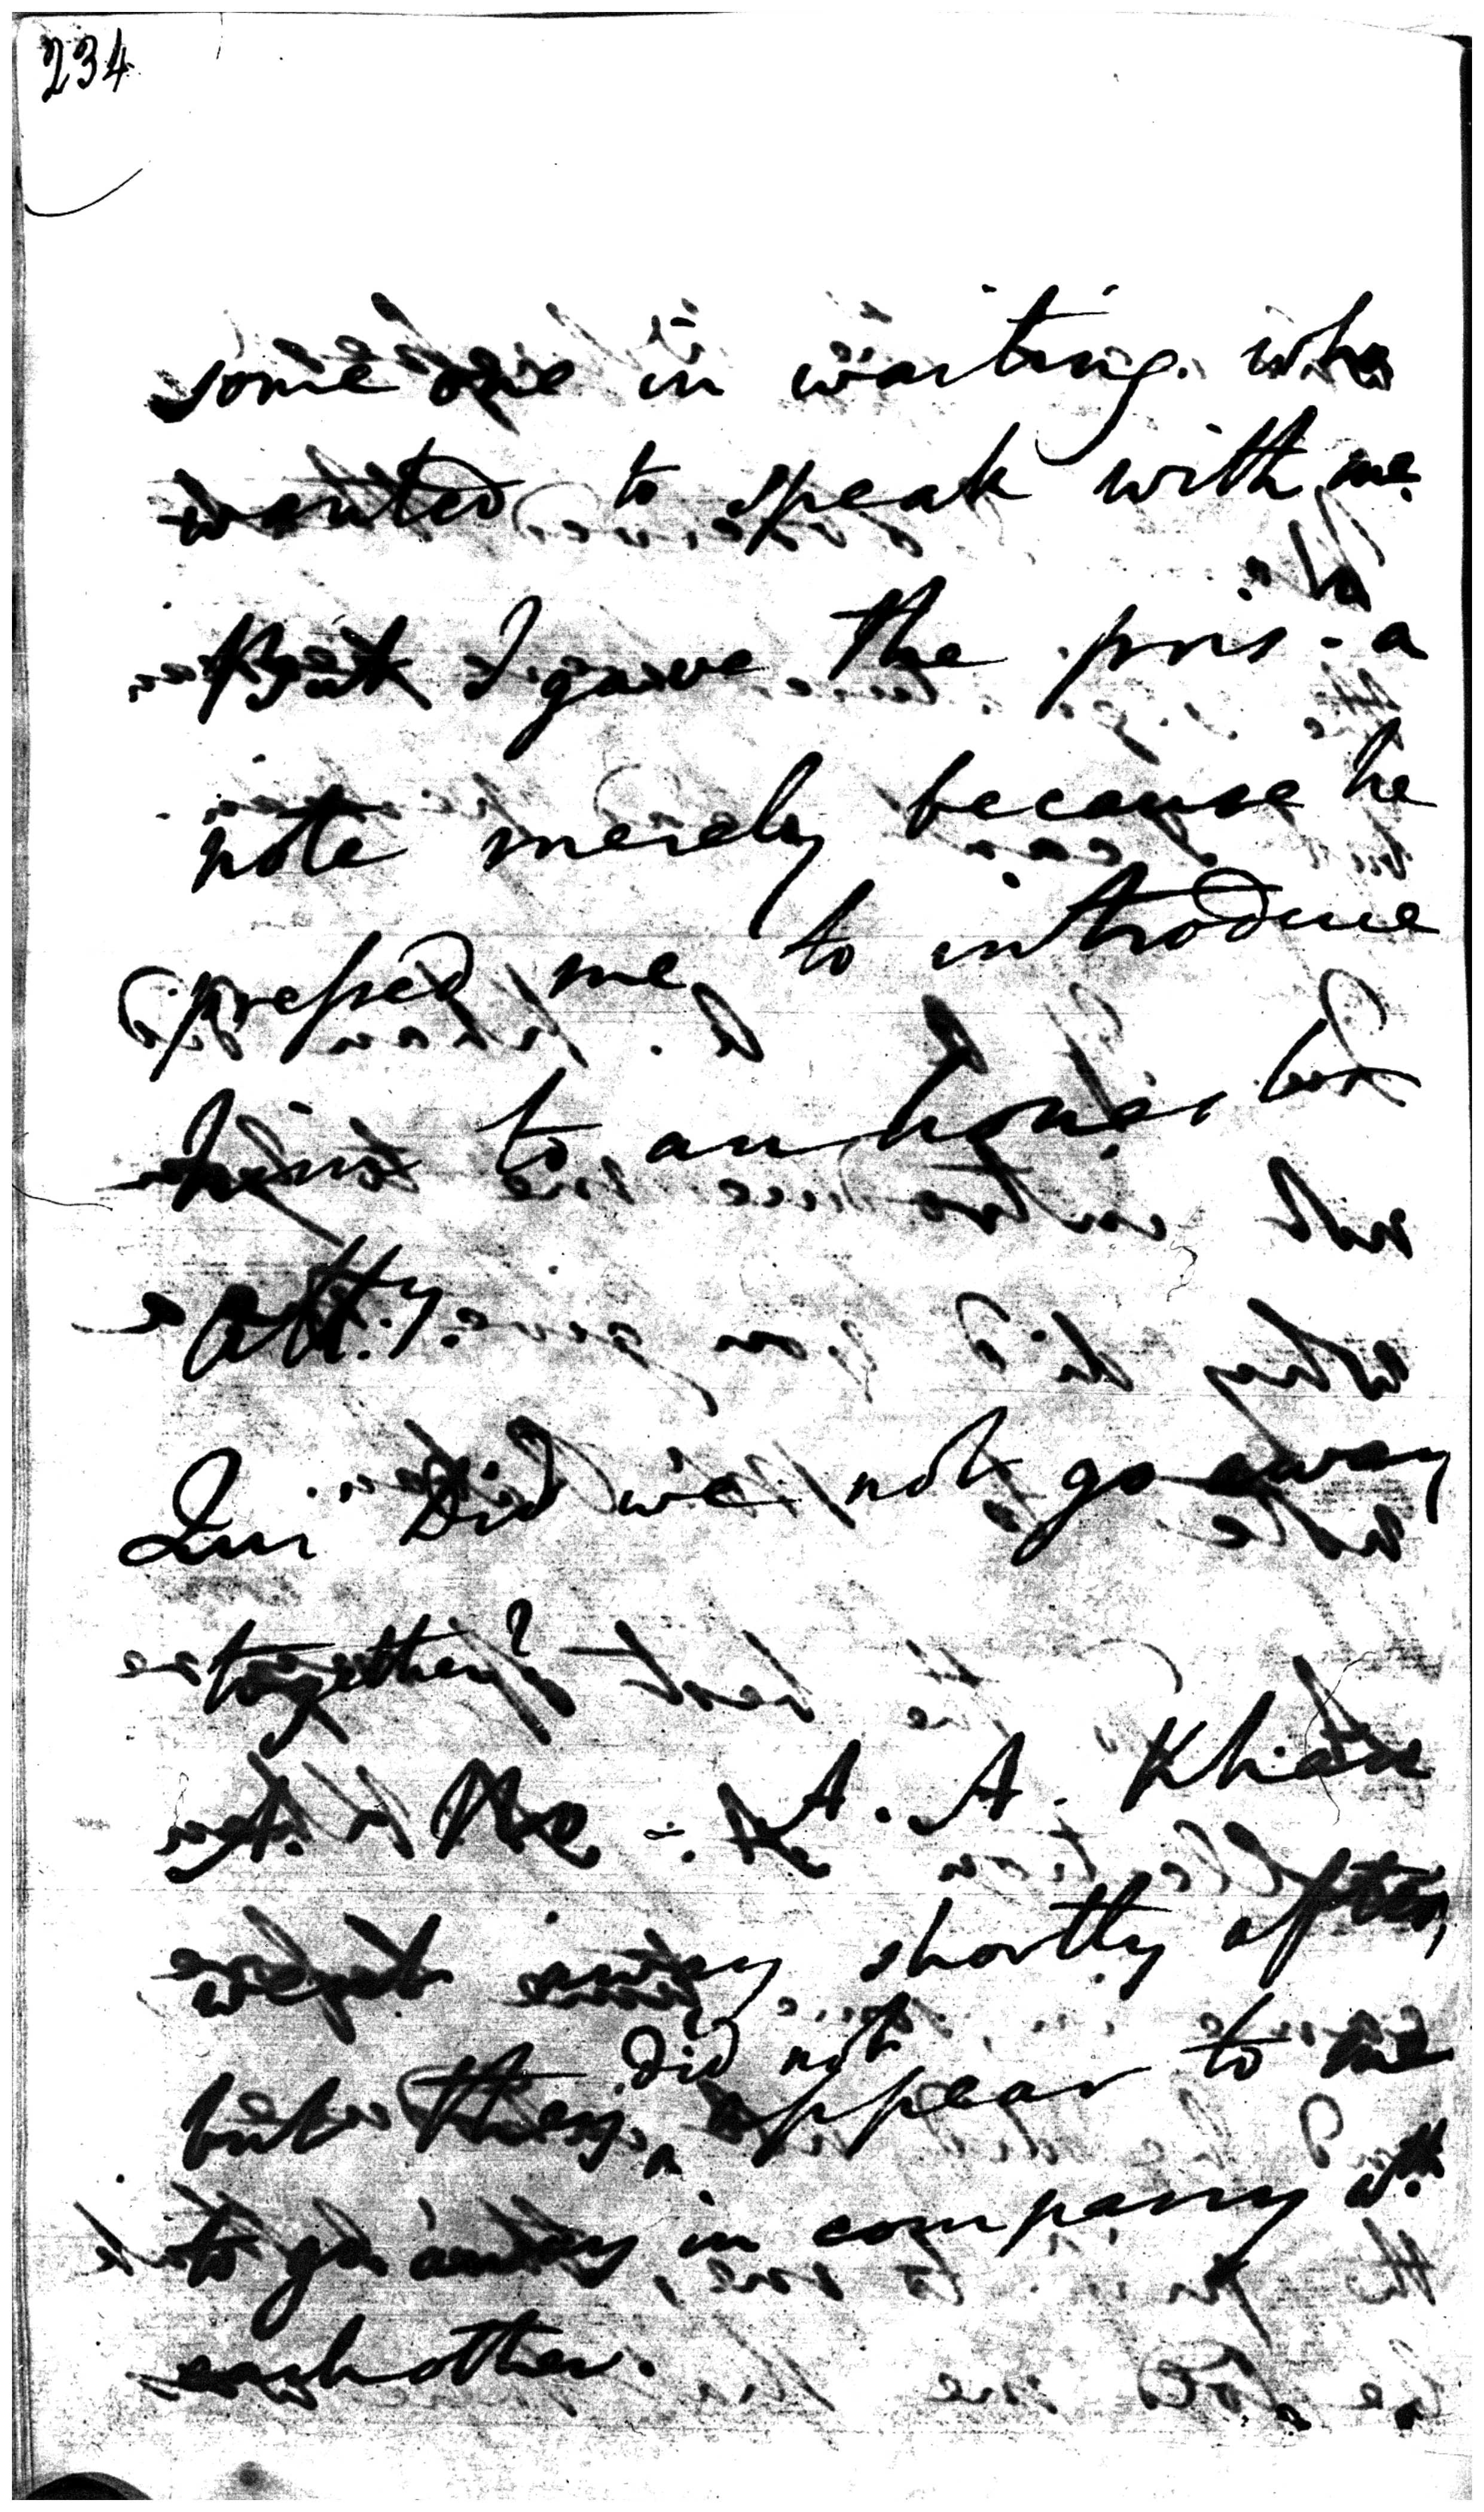 234
some one in waiting who
wanted to speak with me.
But I gave the pris - a
note merely because he
pressed me to introduce
him to an honest
atty.
Qu: Did we not go away
together?
A. No - A. A. Khan
went away shortly after,
but they did not appear to me
to go away in company wth
each other.